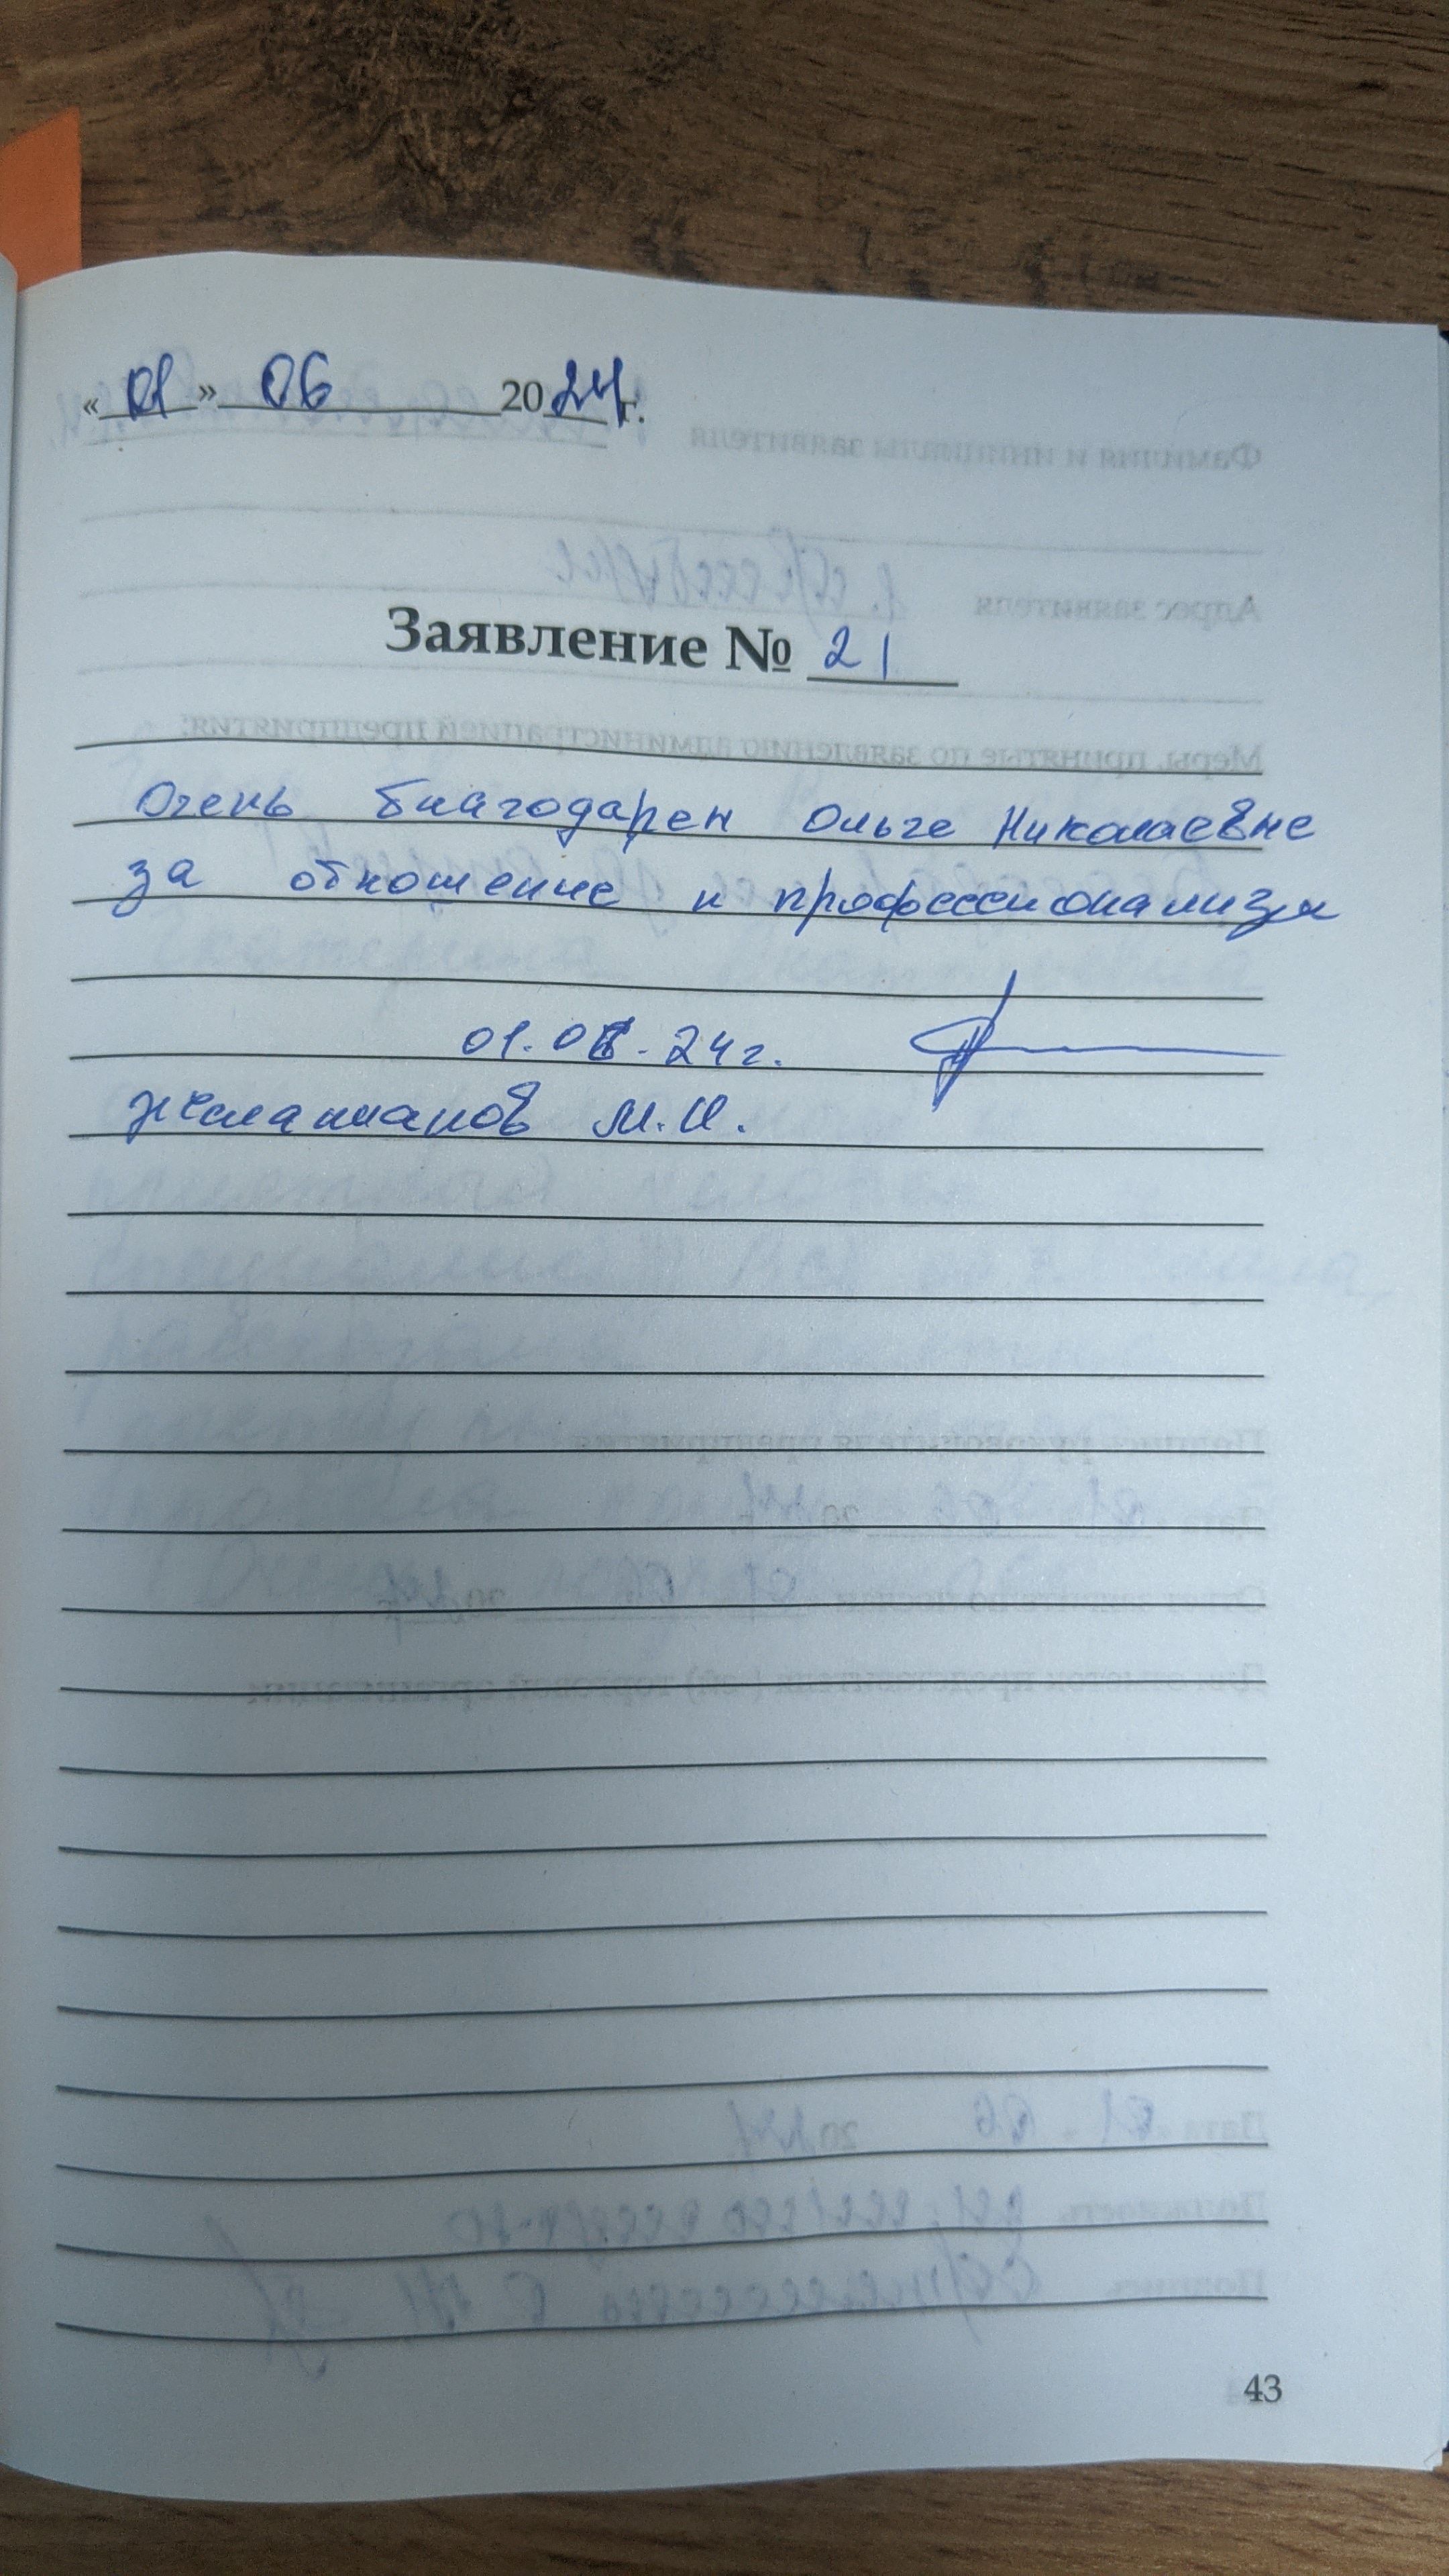 «01» 06 2024 г.
Заявление № 21
Очень благодарен Ольге Николаевне
за отношение и профессионализм
01.06.24г.
М.И.
43